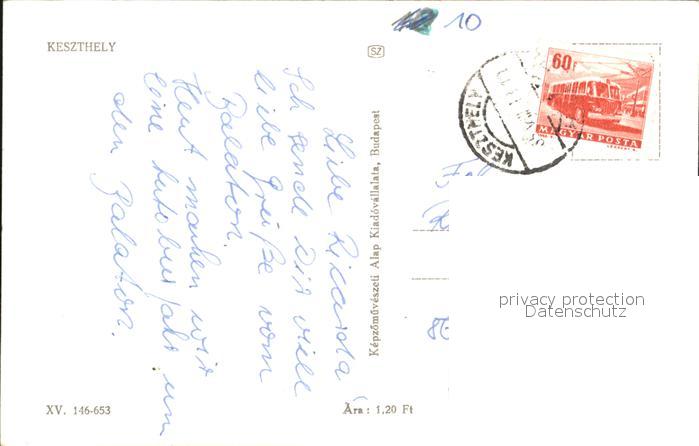 10
KESZTHELY
SZ
60f
MAGYAR POSTA
KESZTHELY
Liebe Ricarda!
Ich sende Dir viele
liebe Grüße vom
Balaton.
Heut machen wir
eine Autobusfahrt um
den Balaton.
Képzőművészeti Alap Kiadóvállalata, Budapest
privacy protection
Datenschutz
XV. 146-653
Ára : 1,20 Ft